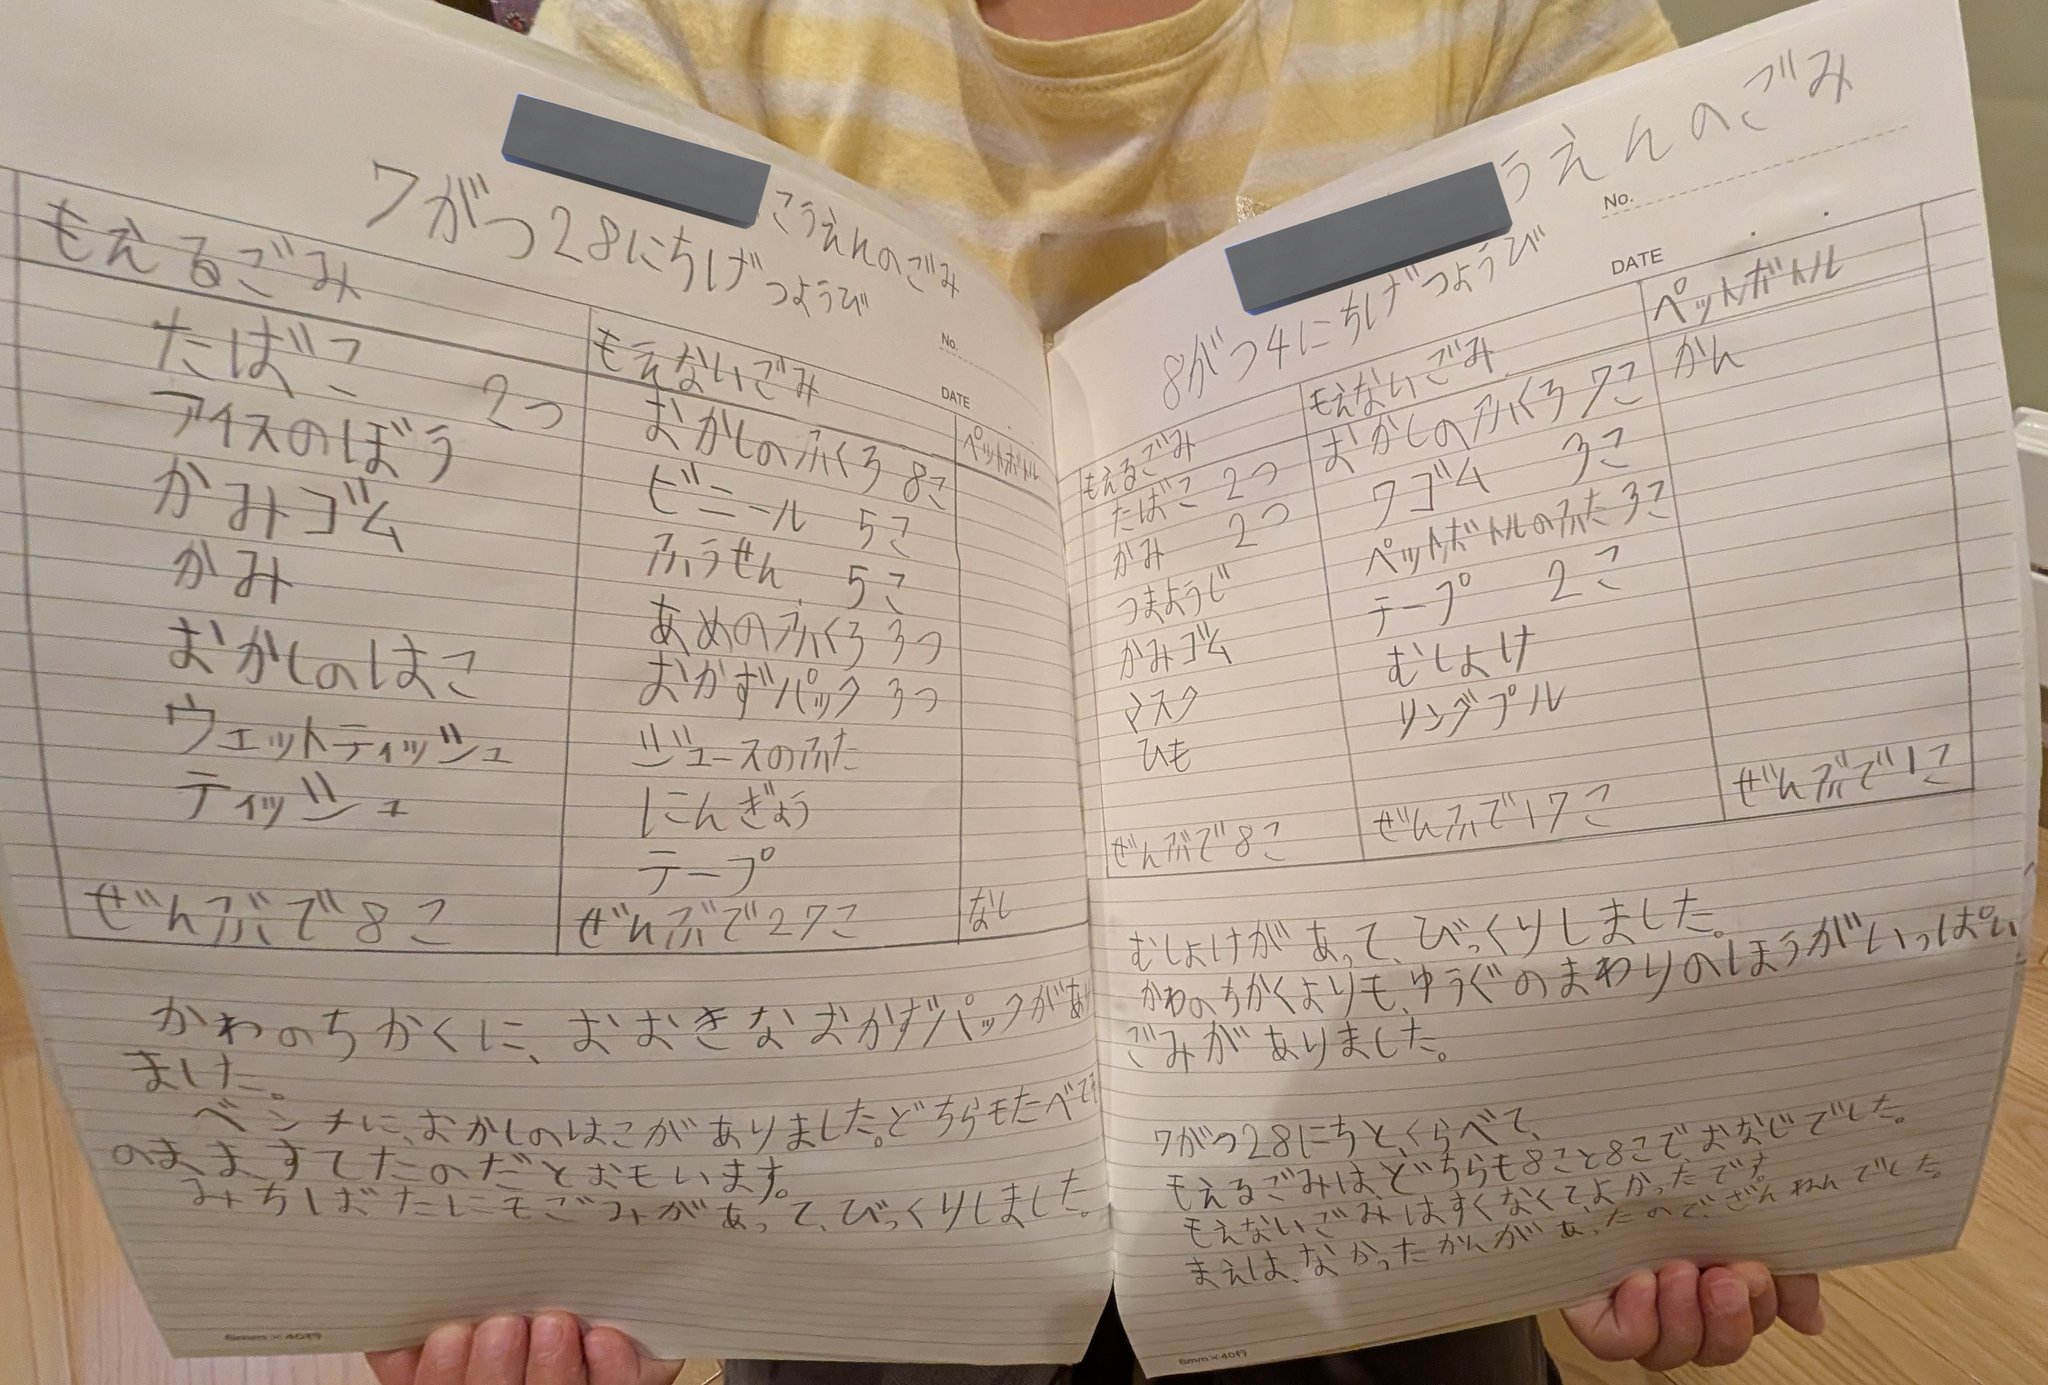 こうえんのごみ
7がつ28にちげつようび
No.
DATE
もえるごみ
たばこ 2つ
アイスのぼう
かみゴム
かみ
おかしのはこ
ウェットティッシュ
ティッシュ
ぜんぶで8こ
もえないごみ
おかしのふくろ 8こ
ビニール 5こ
ふうせん 5こ
あめのふくろ 3つ
おかずパック 3つ
ジュースのふた
にんぎょう
テープ
ぜんぶで27こ
ペットボトル
なし
かわのちかくに、おおきなおかずパックがあり
ました。
ベンチに、おかしのはこがありました。どちらもたべても
のまますてたのだとおもいます。
みちばたにもごみがあって、びっくりしました。
6mm×40行
うえんのごみ
8がつ4にちげつようび
No.
DATE
もえるごみ
たばこ 2つ
かみ 2つ
つまようじ
かみゴム
マスク
ひも
ぜんぶで8こ
もえないごみ
おかしのふくろ 7こ
ワゴム 3こ
ペットボトルのふた 3こ
テープ 2こ
むしよけ
リングプル
ぜんぶで17こ
ペットボトル
かん
ぜんぶで1こ
むしよけがあって、びっくりしました。
かわのちかくよりも、ゆうぐのまわりのほうがいっぱい
ごみがありました。
7がつ28にちと、くらべて、
もえるごみは、どちらも8こと8こで、おなじでした。
もえないごみはすくなくて、よかったです
まえは、なかったかんがあったのでざんねんでした。
6mm×40行